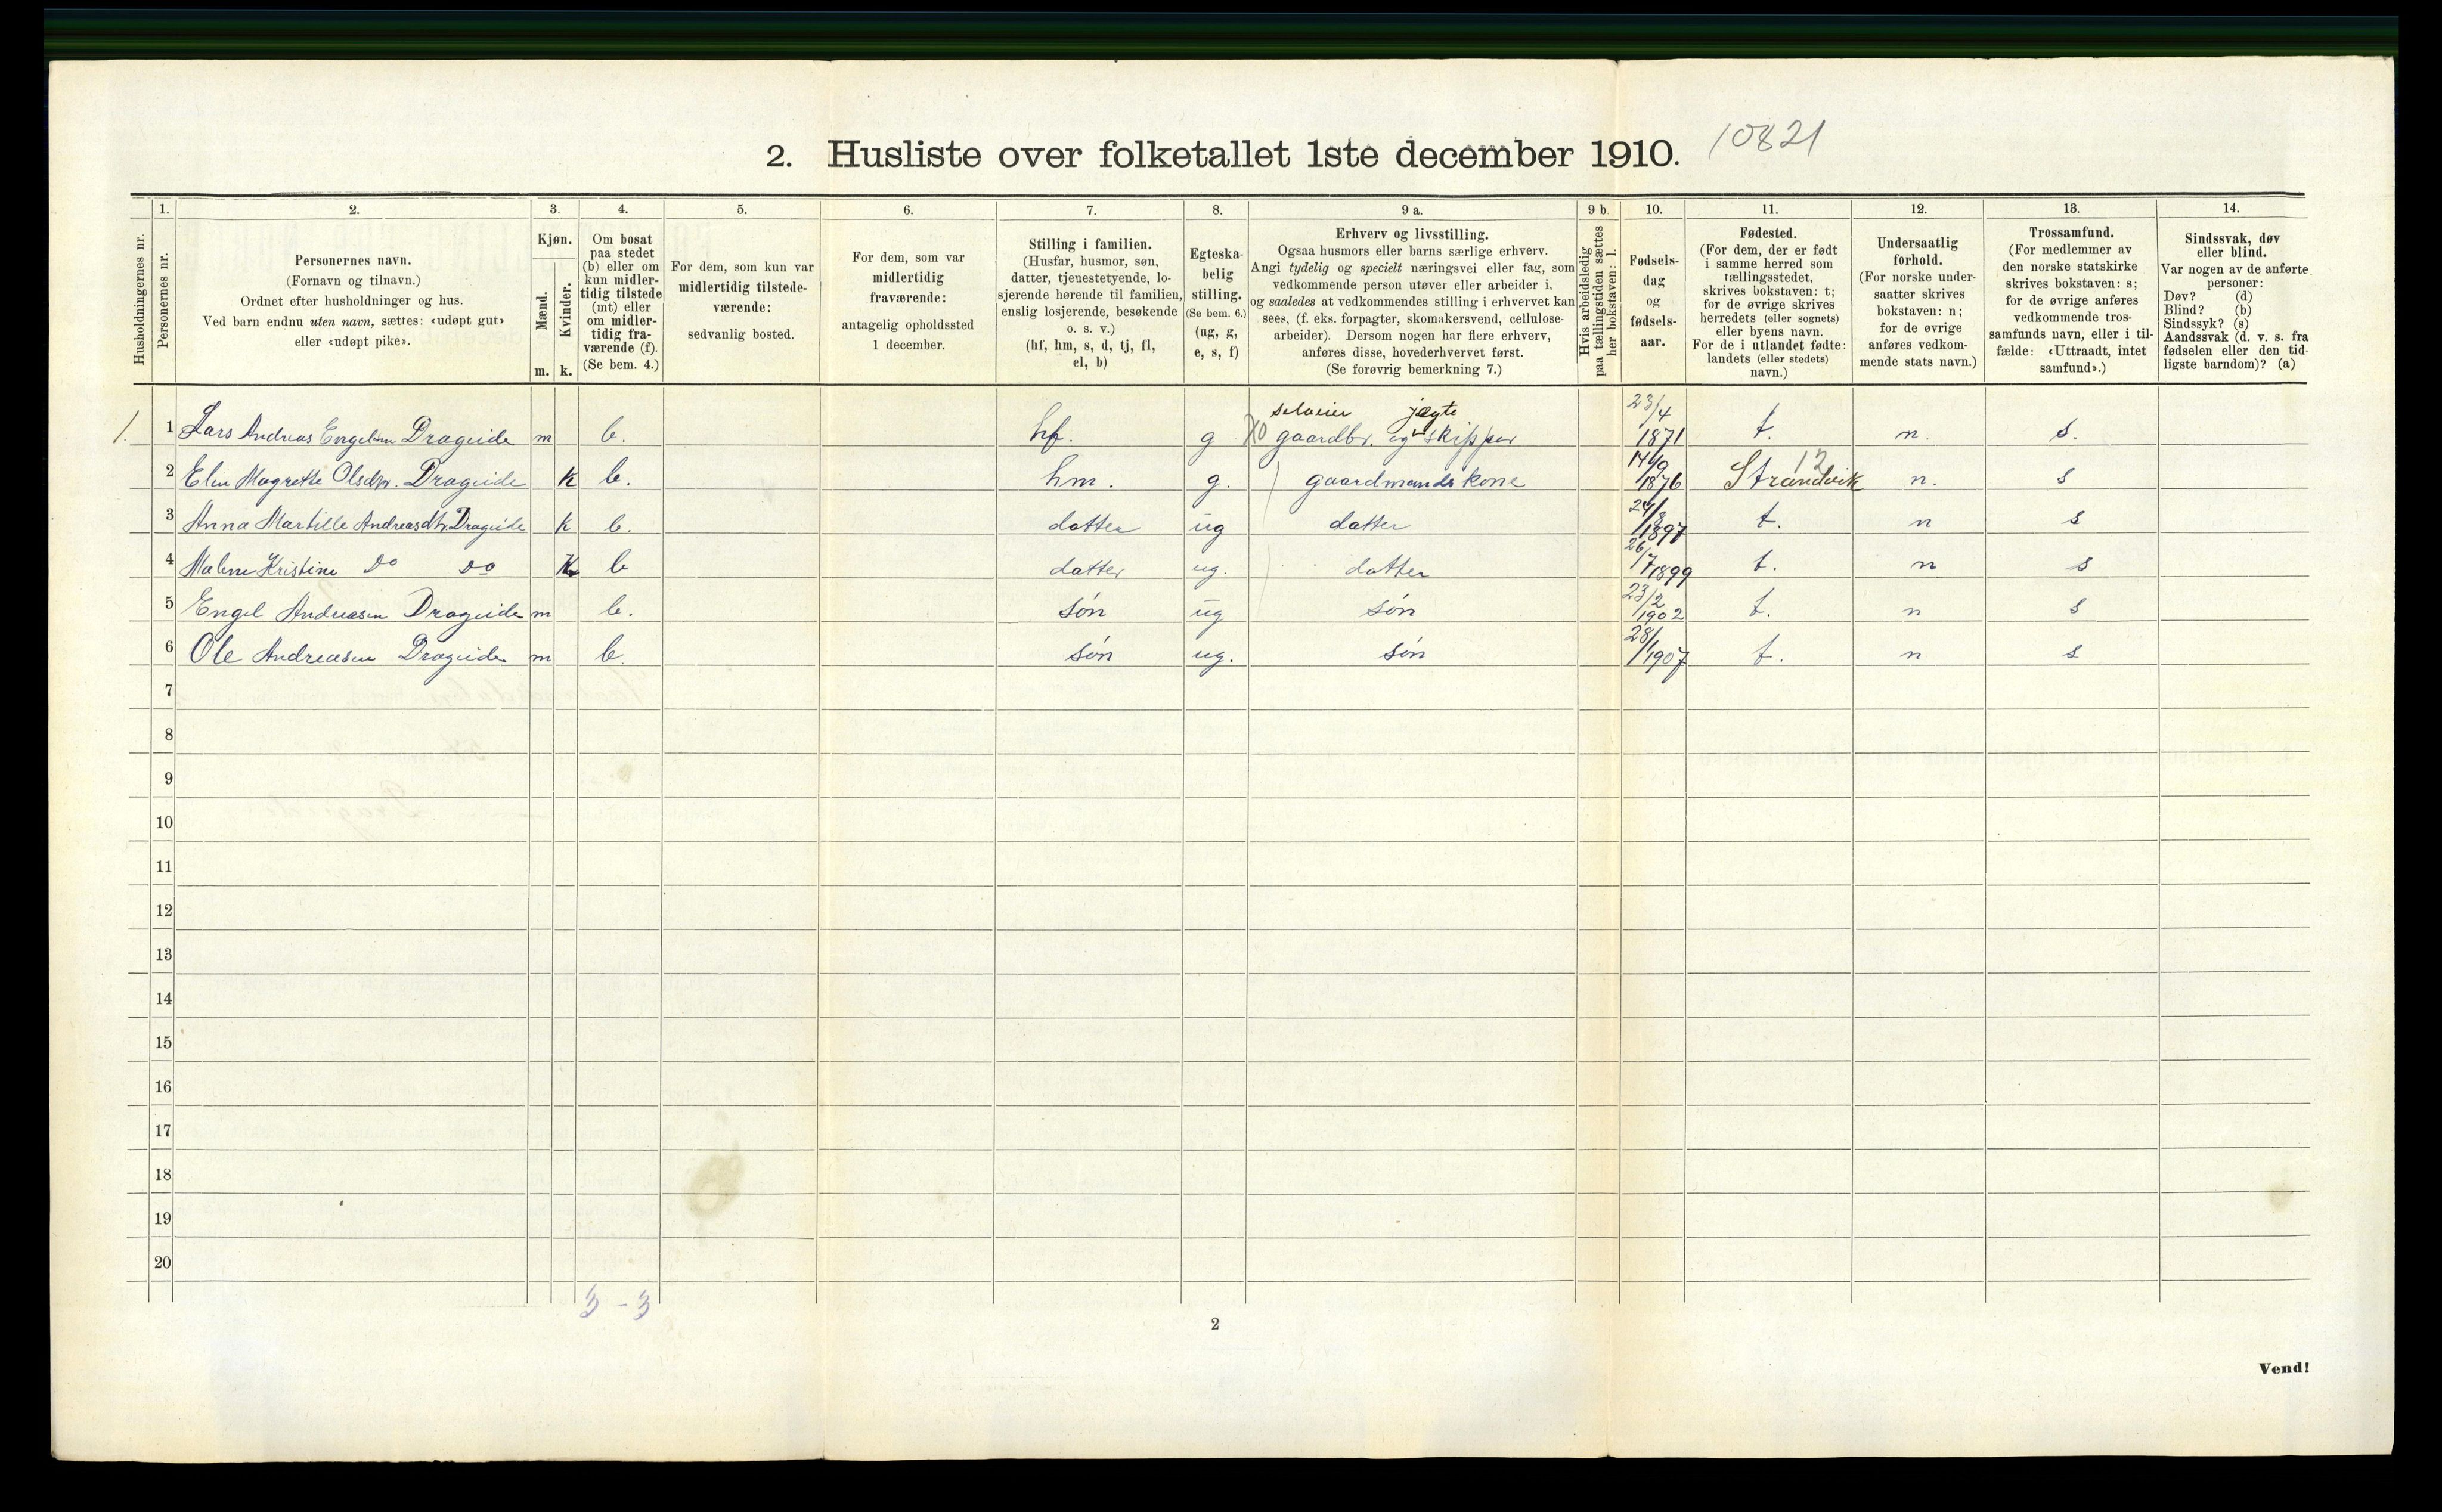 2. Husliste over folketallet 1ste december 1910. 10821
1. 2. 3. 4. 5. 6. 7. 8. 9 a. 9 b. 10. 11. 12. 13. 14.
Husholdningernes nr.
Personernes nr.
Personernes navn.
(Fornavn og tilnavn.)
Ordnet efter husholdninger og hus.
Ved barn endnu uten navn, sættes: «udøpt gut»
eller «udøpt pike».
Kjøn.
Mænd.
Kvinder.
m. k.
Om bosat
paa stedet
(b) eller om
kun midler-
tidig tilstede
(mt) eller
om midler-
tidig fra-
værende (f).
(Se bem. 4.)
For dem, som kun var
midlertidig tilstede-
værende:
sedvanlig bosted.
For dem, som var
midlertidig
fraværende:
antagelig opholdssted
1 december.
Stilling i familien.
(Husfar, husmor, søn,
datter, tjenestetyende, lo-
sjerende hørende til familien,
enslig losjerende, besøkende
o. s. v.)
(hf, hm, s, d, tj, fl,
el, b)
Egteska-
belig
stilling.
(Se bem. 6.)
(ug, g,
e, s, f)
Erhverv og livsstilling.
Ogsaa husmors eller barns særlige erhverv.
Angi tydelig og specielt næringsvei eller fag, som
vedkommende person utøver eller arbeider i,
og saaledes at vedkommendes stilling i erhvervet kan
sees, (f. eks. forpagter, skomakersvend, cellulose-
arbeider). Dersom nogen har flere erhverv,
anføres disse, hovederhvervet først.
(Se forøvrig bemerkning 7.)
Hvis arbeidsledig
paa tællingstiden sættes
her bokstaven: l.
Fødsels-
dag
og
fødsels-
aar.
Fødested.
(For dem, der er født
i samme herred som
tællingsstedet,
skrives bokstaven: t;
for de øvrige skrives
herredets (eller sognets)
eller byens navn.
For de i utlandet fødte:
landets (eller stedets)
navn.)
Undersaatlig
forhold.
(For norske under-
saatter skrives
bokstaven: n;
for de øvrige
anføres vedkom-
mende stats navn.)
Trossamfund.
(For medlemmer av
den norske statskirke
skrives bokstaven: s;
for de øvrige anføres
vedkommende tros-
samfunds navn, eller i til-
fælde: «Uttraadt, intet
samfund».)
Sindssvak, døv
eller blind.
Var nogen av de anførte
personer:
Døv? (d)
Blind? (b)
Sindssyk? (s)
Aandssvak (d. v. s. fra
fødselen eller den tid-
ligste barndom)? (a)
selveier jægte 23/4
1. 1 Lars Andreas Engelsen Drageide m b. hf. g X0 gaardbr. og skipper 1871 t. n. s.
14/9 12
2 Elen Magrethe Olsdtr. Drageide k b. hm. g. gaardmandskone 1876 Strandvik n. s
3 Anna Martille Andreasdtr. Drageide k b. datter ug datter 24/8 1897 t. n s
4 Malene Kristine Do Do K b datter ug. datter 26/7 1899 t. n s
5 Engel Andreasen Drageide m b. søn ug søn 23/2 1902 t. n s
6 Ole Andreasen Drageide m b. søn ug. søn 28/1 1907 t. n s
7
8
9
10
11
12
13
14
15
16
17
18
19
20
3 - 3
2
Vend!